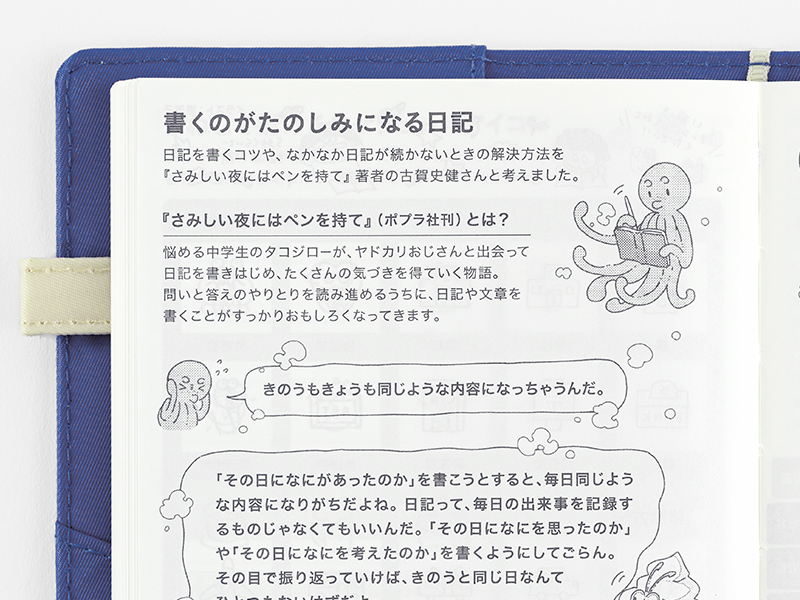 書くのがたのしみになる日記
日記を書くコツや、なかなか日記が続かないときの解決方法を
『さみしい夜にはペンを持て』著者の古賀史健さんと考えました。
『さみしい夜にはペンを持て』(ポプラ社刊)とは?
悩める中学生のタコジローが、ヤドカリおじさんと出会って
日記を書きはじめ、たくさんの気づきを得ていく物語。
問いと答えのやりとりを読み進めるうちに、日記や文章を
書くことがすっかりおもしろくなってきます。
きのうもきょうも同じような内容になっちゃうんだ。
「その日になにがあったのか」を書こうとすると、毎日同じよう
な内容になりがちだよね。日記って、毎日の出来事を記録す
るものじゃなくてもいいんだ。「その日になにを思ったのか」
や「その日になにを考えたのか」を書くようにしてごらん。
その目で振り返っていけば、きのうと同じ日なんて